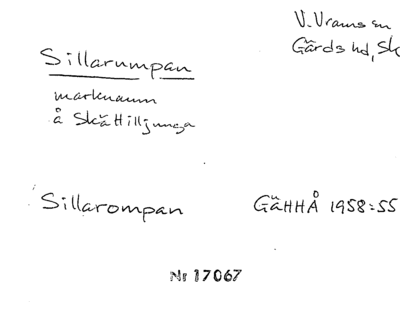 V. Vram sn
Gärds hd, Sk
Sillarumpan
marknamn
å Skättilljunga
Sillarompan GäHHÅ 1958:55
Nr 17067